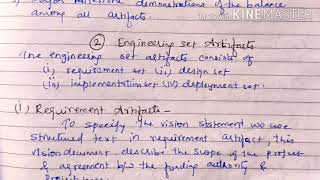 Major milestone demonstrations of the balance
among all artifacts.
MADE WITH
KINEMASTER
② Engineering Set Artifacts
The engineering set artifacts consists of
(i) requirement set (ii) design set
(iii) implementation set (iv) deployment set.
(i) Requirement Artifacts -
To specify the vision statement we use
structured text in requirement artifact, this
vision document describe the scope of the project
& agreement b/w the funding authority &
project